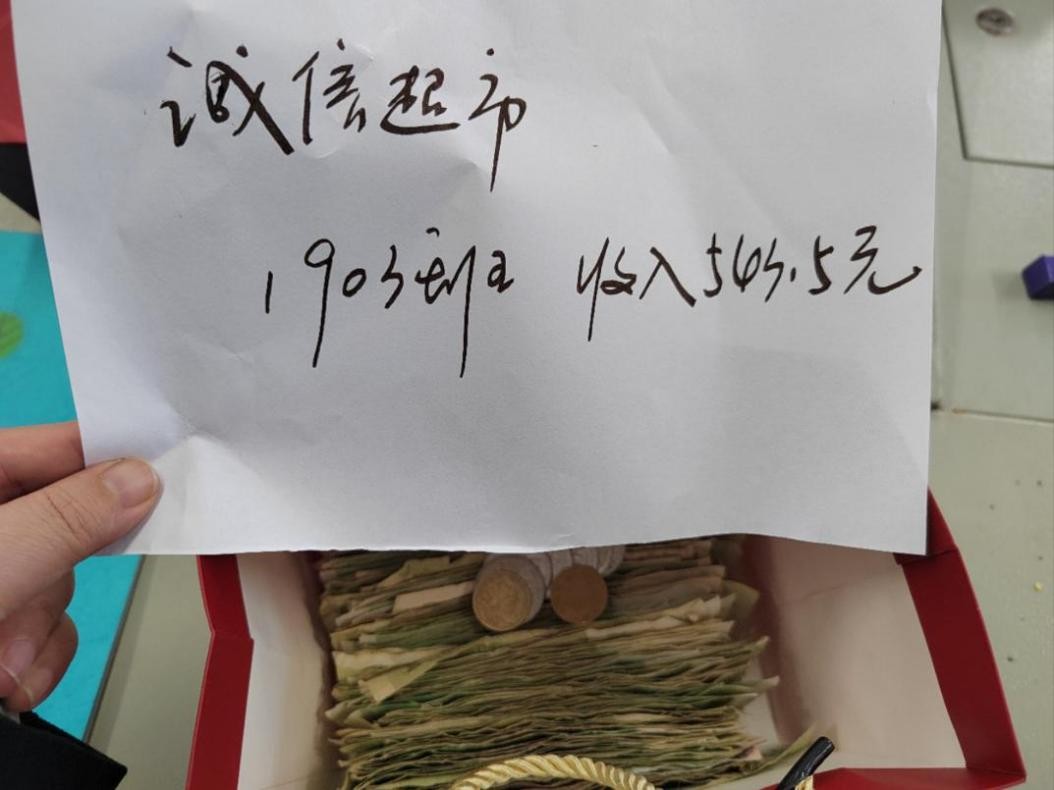 诚信超市
1903班 收入543.5元